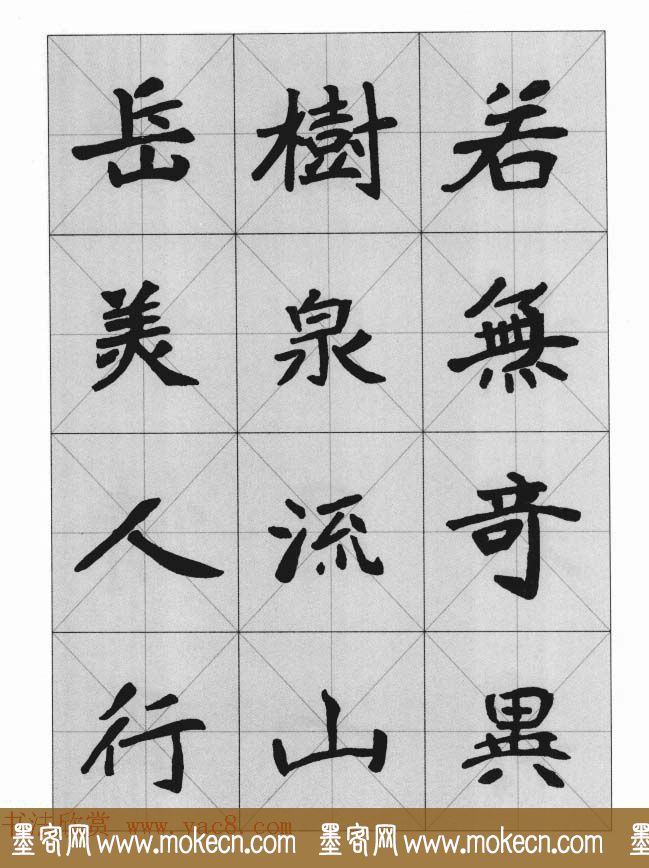 若無奇異
樹泉流山
岳美人行
书法欣赏 www.yac8.com
墨客网 www.mokecn.com 墨客网 www.mokecn.com